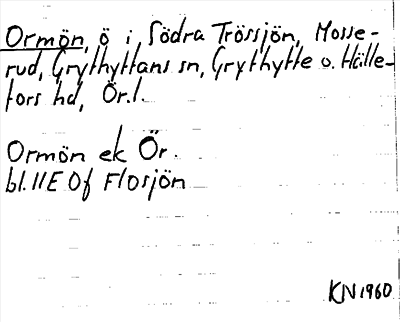 Ormön, ö i Södra Trössjön, Mosse-
rud, Grythyttans sn, Grythytte o. Hälle-
fors hd, Ör.l.
Ormön ek Ör.
bl. 11E 0f Flosjön
KN 1960